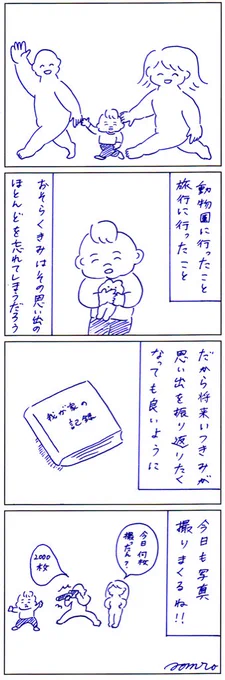 動物園に行ったこと
旅行に行ったこと
おそらくきみはその思い出の
ほとんどを忘れてしまうだろう
だから将来いつきみが
思い出を振り返りたく
なっても良いように
我が家の
記録
今日も写真
撮りまくるね!!
今日何枚
撮ったん?
2000
枚